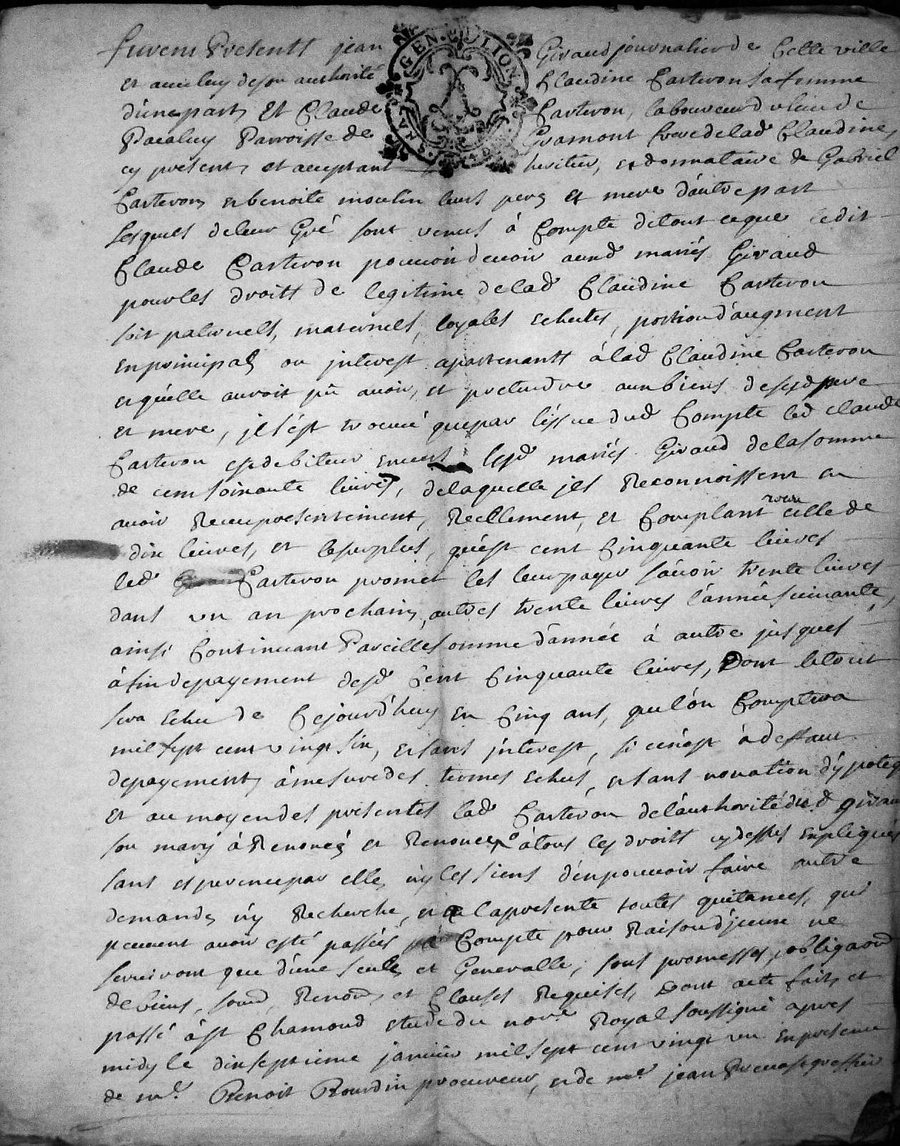 furent Presents jean Giraud journalier de Cette ville
et avec luy de son authorité Claudine Carteron sa femme
d'une part, Et Claude Carteron, laboureur du lieu de
Parroisse de Gramont frere de lad Claudine,
cy present, et acceptant heritier, et donnataire de Gabriel
Carteron, et benoite moulin leurs pere et mere d'autre part
Lesquels de leur Gré sont venus à Compte de tout ce que ledit
Claude Carteron pouvoit devoir aux d mariés Giraud
pour les droitt de legitime de lad Claudine Carteron
soit paternels, maternels, loyales echutes, portion d'augment
en principal ou interest apartenants à lad Claudine Carteron
et qu'elle auroit pû avoir, et pretendre aux biens desesd pere
et mere, il s'est trouvé que par l'issue dud Compte led Claude
Carteron est debiteur envers lesd mariés Giraud de la somme
de cent soixante livres, de laquelle ils Reconnoissent en
avoir Receu presentement, Reellement, et Comptant celle de
dix livres, et le surplus, qu'est cent Cinquante livres
led Carteron promet les leur payer sçavoir trente livres
dans un an prochain, autres trente livres l'année suivante,
ainsi Continuant Pareille somme d'année à autre jusques
à fin de payement desd Cent Cinquante livres, Dont le tout
sera echu de Cejourd'huy en Cinq ans, qu'on Comptera
mil sept cent vingt six, et sans interest, si ce n'est à deffaut
de payement, à mesure des termes echus, et sans novation d'ypoteq
et au moyen des presentes lad Carteron de l'authorité dud Giraud
son mary à Renoncé et Renonce à tous les droitt cy dessus expliqués
sans esperence par elle, ny les siens d'en pouvoir faire autre
demande, ny Recherche, et à la presente toutes quitances, qui
peuvent avoir esté passées Compte pour Raison d'jceux ne
serviront que d'une seule et Generalle, sous promesses, obligaõns
de biens, soumd, Renond, et Clauses Requises, Dont acte fait, et
passé à st Chamond etude du nore Royal soussigné apres
midy le dixseptieme janvier mil sept cent vingt un en presence
de mr. Benoit Bourdin procureur, et de mr. jean Prevost greffier
GEN. LION